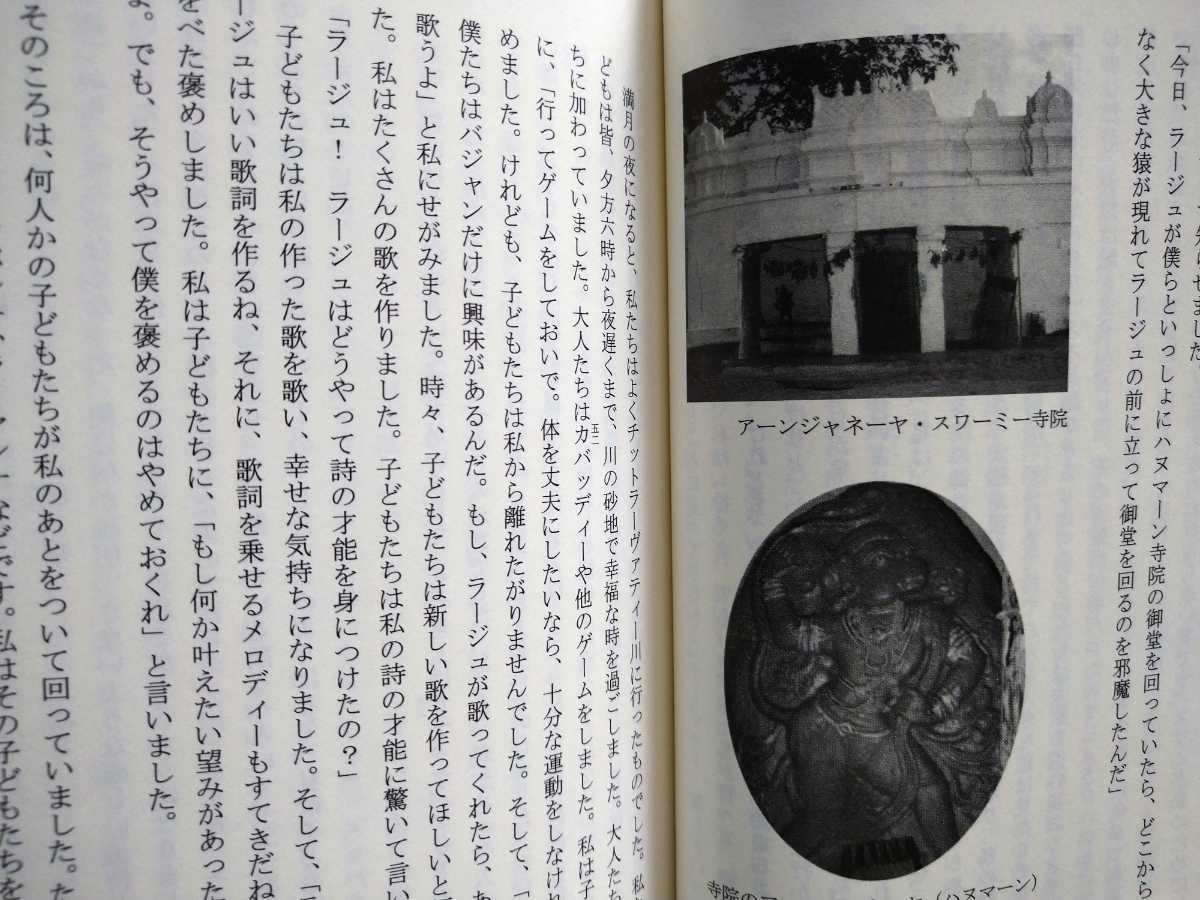 せました。
「今日、ラージュが僕らといっしょにハヌマーン寺院の御堂を回っていたら、どこから
なく大きな猿が現れてラージュの前に立って御堂を回るのを邪魔したんだ」
アーンジャネーヤ・スワーミー寺院
寺院の
(ハヌマーン)
満月の夜になると、私たちはよくチットラーヴァティー川に行ったものでした。私
どもは皆、夕方六時から夜遅くまで、川の砂地で幸福な時を過ごしました。大人たち
ちに加わっていました。大人たちはカバッディーや他のゲームをしました。私は子
五二
に、「行ってゲームをしておいで。体を丈夫にしたいなら、十分な運動をしなけれ
めました。けれども、子どもたちは私から離れたがりませんでした。そして、「
僕たちはバジャンだけに興味があるんだ。もし、ラージュが歌ってくれたら、
歌うよ」と私にせがみました。時々、子どもたちは新しい歌を作ってほしいと
た。私はたくさんの歌を作りました。子どもたちは私の詩の才能に驚いて言い
「ラージュ！ ラージュはどうやって詩の才能を身につけたの？」
子どもたちは私の作った歌を歌い、幸せな気持ちになりました。そして、「
ージュはいい歌詞を作るね、それに、歌詞を乗せるメロディーもすてきだね
をべた褒めしました。私は子どもたちに、「もし何か叶えたい望みがあった
よ。でも、そうやって僕を褒めるのはやめておくれ」と言いました。
そのころは、何人かの子どもたちが私のあとをついて回っていました。た
などです。私はその子どもたちを